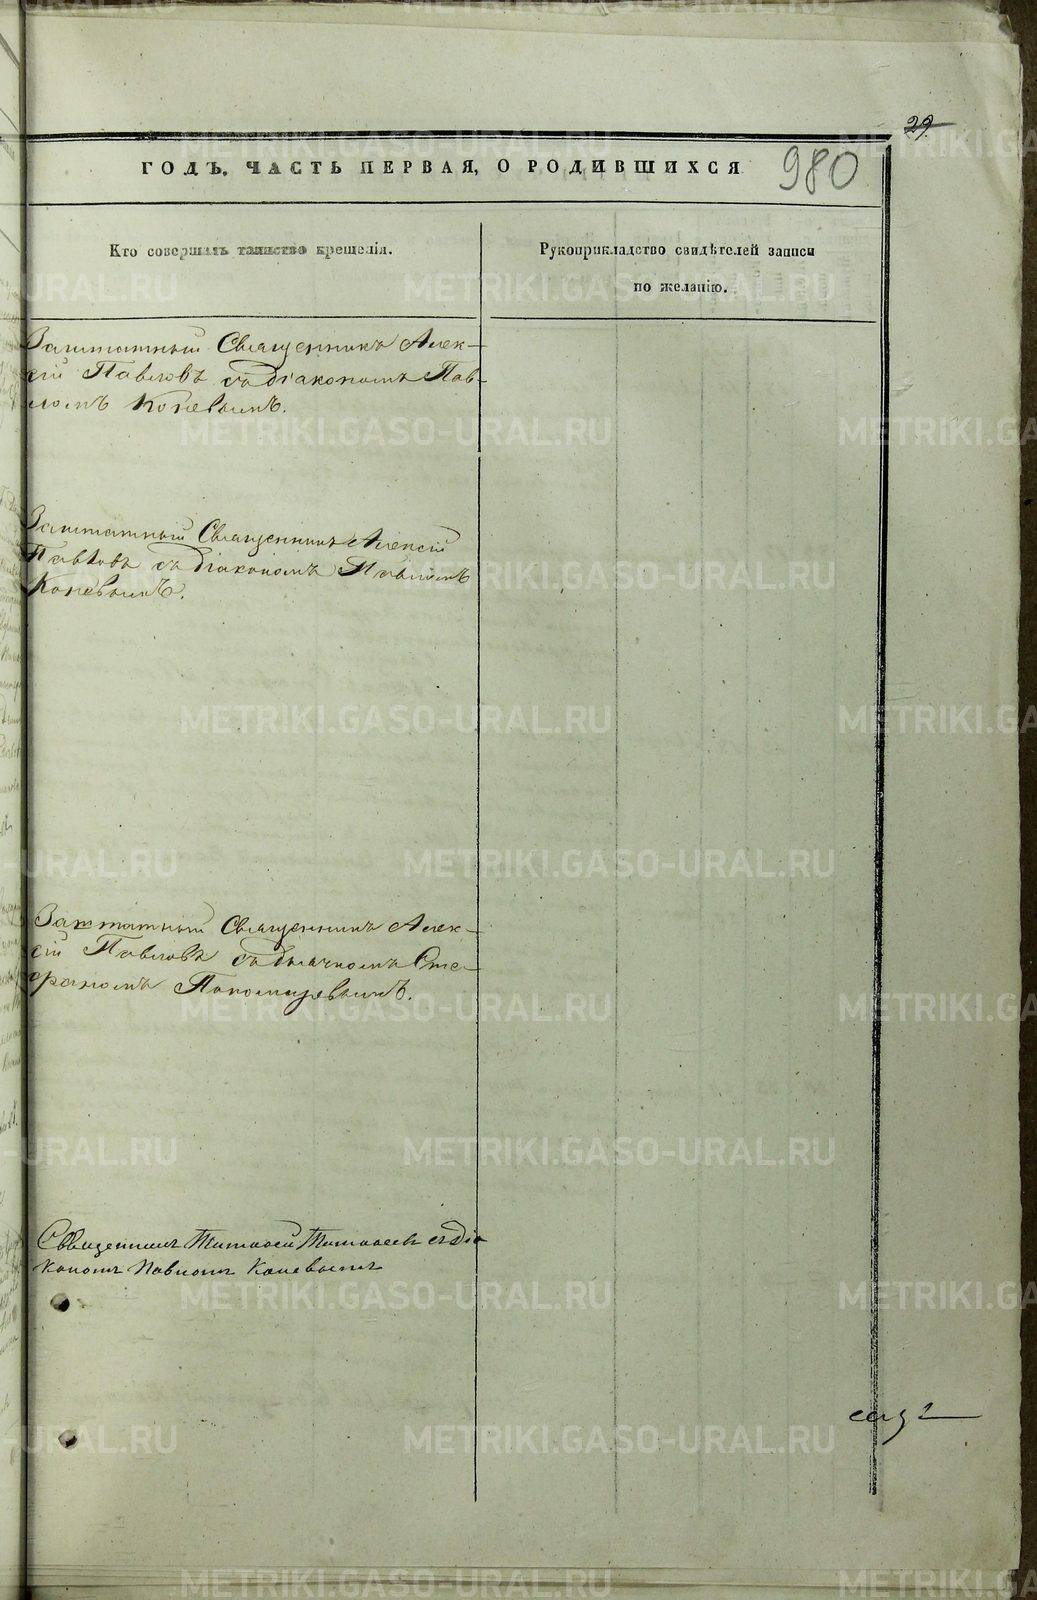 29
ГОДЪ. ЧАСТЬ ПЕРВАЯ, О РОДИВШИХСЯ
980
Кто совершалъ таинство крещенія.
Рукоприкладство свидѣтелей записи
по желанію.
Заштатный Священникъ Алек-
сій Павловъ съ діакономъ Пав-
ломъ Коневымъ.
Заштатный Священникъ Алексій
Павловъ съ діакономъ Павломъ
Коневымъ.
Заштатный Священникъ Алек-
сій Павловъ съ дьячкомъ Сте-
фаномъ Пономаревымъ.
Священникъ Тимофей Тимофеевъ съ діа
кономъ Павломъ Коневымъ
METRIKI.GASO-URAL.RU